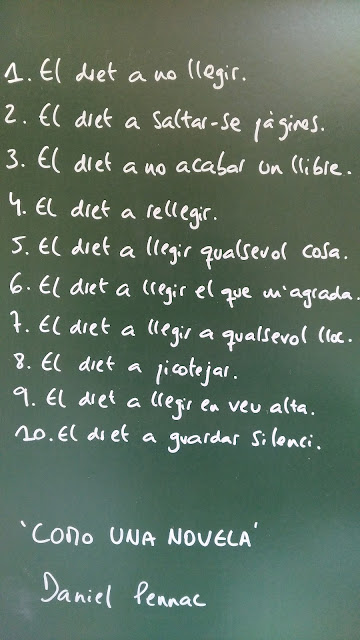 1. El dret a no llegir.
2. El dret a saltar-se pàgines.
3. El dret a no acabar un llibre.
4. El dret a rellegir.
5. El dret a llegir qualsevol cosa.
6. El dret a llegir el que m'agrada.
7. El dret a llegir a qualsevol lloc.
8. El dret a picotejar.
9. El dret a llegir en veu alta.
10. El dret a guardar silenci.
'COMO UNA NOVELA'
Daniel Pennac